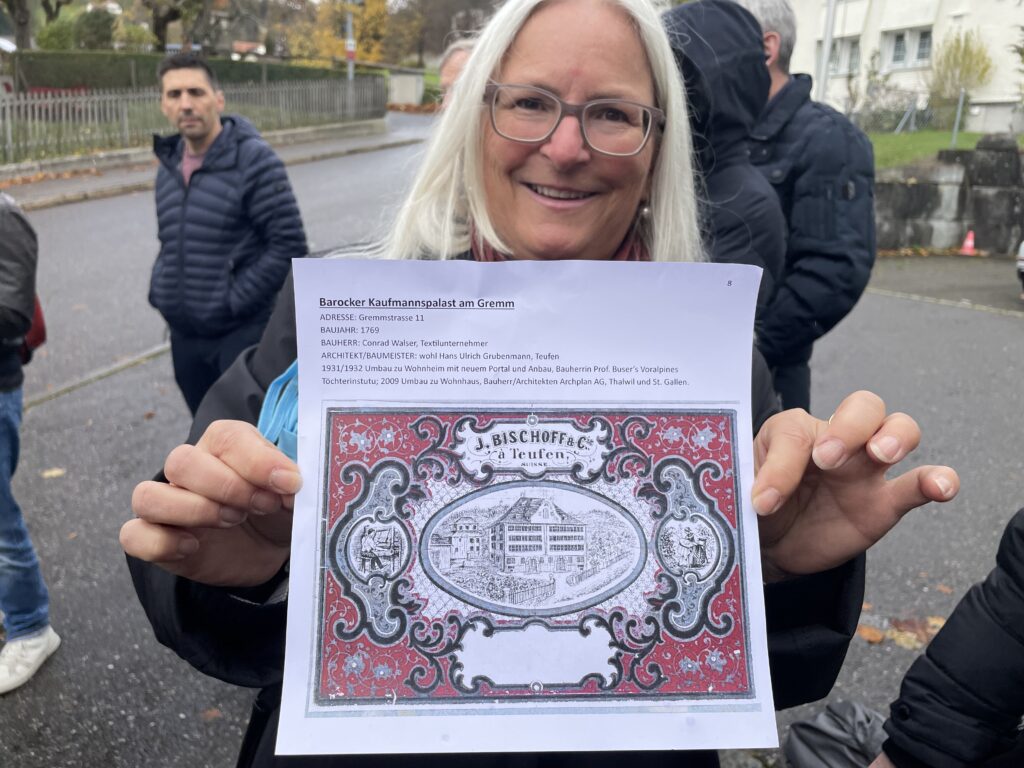 8
Barocker Kaufmannspalast am Gremm
ADRESSE: Gremmstrasse 11
BAUJAHR: 1769
BAUHERR: Conrad Walser, Textilunternehmer
ARCHITEKT/BAUMEISTER: wohl Hans Ulrich Grubenmann, Teufen
1931/1932 Umbau zu Wohnheim mit neuem Portal und Anbau, Bauherrin Prof. Buser's Voralpines
Töchterinstutu; 2009 Umbau zu Wohnhaus, Bauherr/Architekten Archplan AG, Thalwil und St. Gallen.
J. BISCHOFF & Cie
à Teufen.
SUISSE